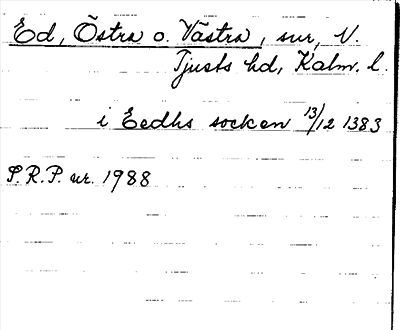 Ed, Östra o. Västra, sur, N.
Tjusts hd, Kalm. l.
i Eedhs socken 13/12 1383
S.R.P. nr. 1988